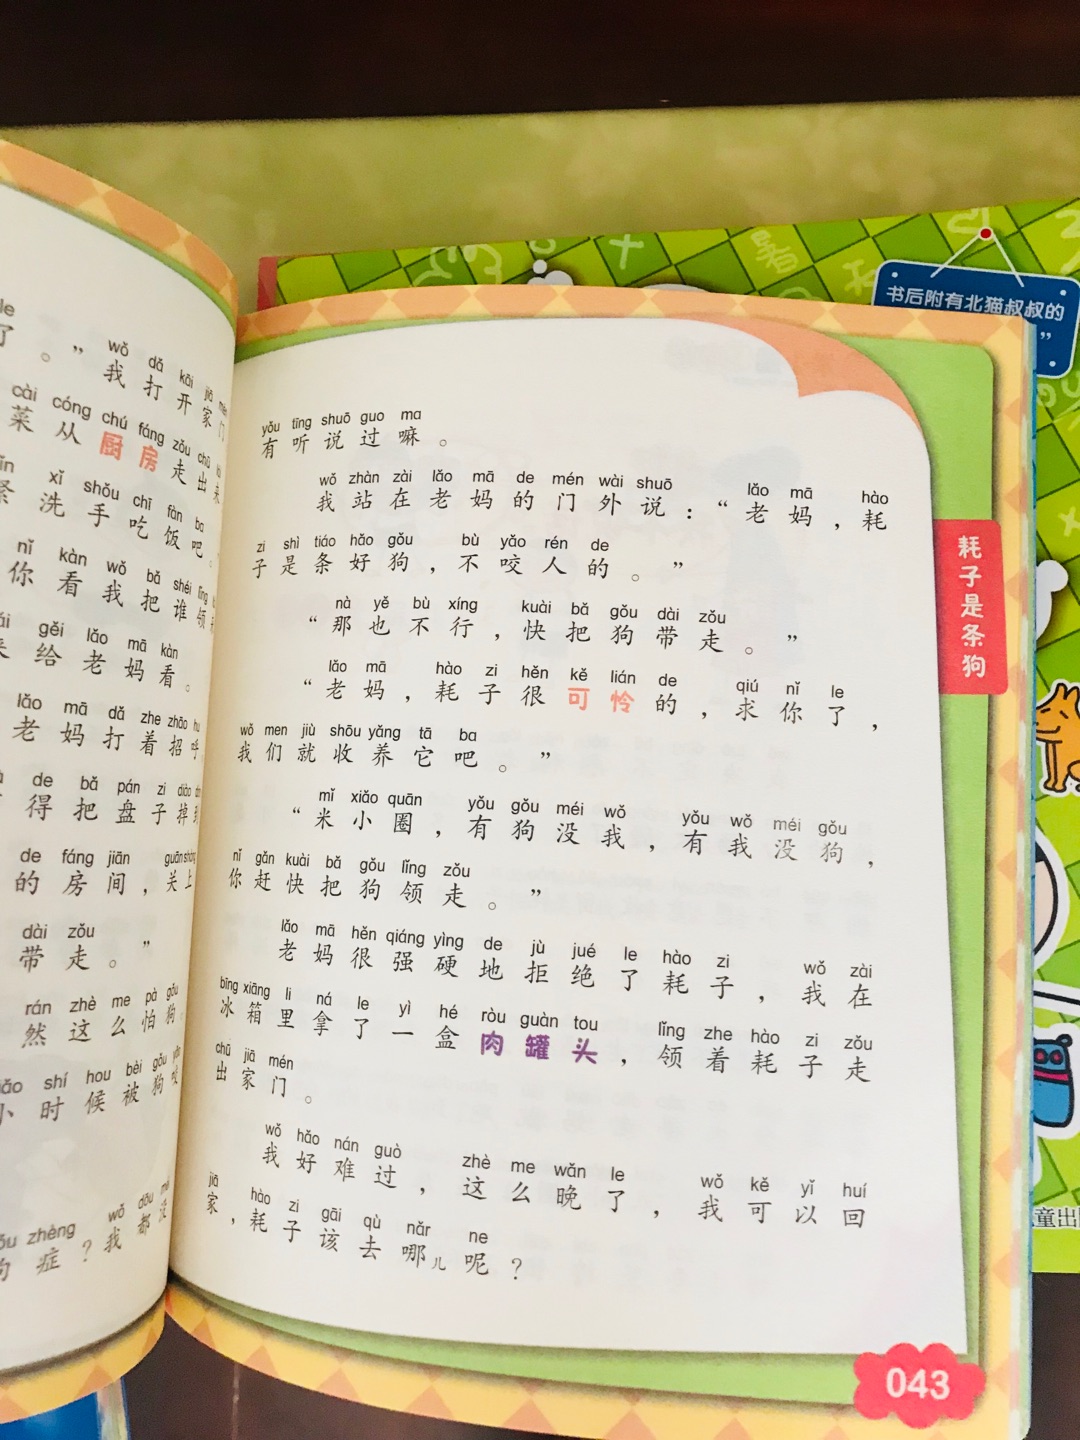 le
了。”我打开家门
wǒ dǎ kāi jiā mén
cài cóng chú fáng zǒu chū
菜从厨房走出来
xǐ shǒu chī fàn ba
紧洗手吃饭吧。
nǐ kàn wǒ bǎ shéi lǐng
你看我把谁领
gěi lǎo mā kàn
来给老妈看。
lǎo mā dǎ zhe zhāo hu
老妈打着招呼
de bǎ pán zi diào
得把盘子掉到
de fáng jiān guān shàng
的房间,关上
dài zǒu
带走。”
rán zhè me pà gǒu
然这么怕狗
shí hou bèi gǒu yǎo
小时候被狗咬
zhèng wǒ dōu méi
狗症?我都没
yǒu tīng shuō guo ma
有听说过嘛。
wǒ zhàn zài lǎo mā de mén wài shuō lǎo mā hào
我站在老妈的门外说:“老妈,耗
zi shì tiáo hǎo gǒu bù yǎo rén de
子是条好狗,不咬人的。”
nà yě bù xíng kuài bǎ gǒu dài zǒu
“那也不行,快把狗带走。”
lǎo mā hào zi hěn kě lián de qiú nǐ le
“老妈,耗子很可怜的,求你了,
wǒ men jiù shōu yǎng tā ba
我们就收养它吧。”
mǐ xiǎo quān yǒu gǒu méi wǒ yǒu wǒ méi gǒu
“米小圈,有狗没我,有我没狗,
nǐ gǎn kuài bǎ gǒu lǐng zǒu
你赶快把狗领走。”
lǎo mā hěn qiáng yìng de jù jué le hào zi wǒ zài
老妈很强硬地拒绝了耗子,我在
bīng xiāng li ná le yì hé ròu guàn tou lǐng zhe hào zi zǒu
冰箱里拿了一盒肉罐头,领着耗子走
chū jiā mén
出家门。
wǒ hǎo nán guò zhè me wǎn le wǒ kě yǐ huí
我好难过,这么晚了,我可以回
jiā hào zi gāi qù nǎr ne
家,耗子该去哪儿呢?
耗子是条狗
043
书后附有北猫叔叔的
”
童出